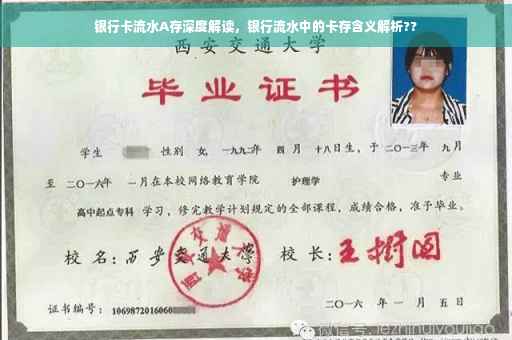 银行卡流水A存深度解读，银行流水中的卡存含义解析??
西安交通大学
毕业证书
学生 性别 女, 一九九二年 四 月 十八日生，于 二〇一三年 九月
至 二〇一六年 一月在本校网络教育学院 护理学 专业
高中起点专科 学习，修完教学计划规定的全部课程，成绩合格，准予毕业。
校 名：西安交通大学 校 长：王树国
西安交通大学
证书编号：1069872016060
二〇一六 年 一 月 五 日
微信号: jezhihuiyoujiao